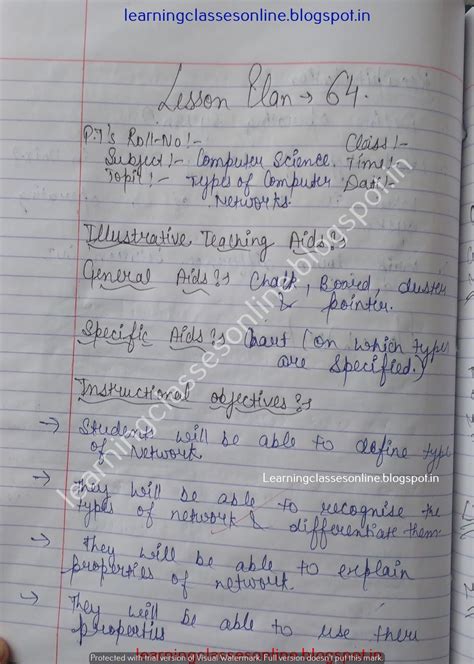 learningclassesonline.blogspot.in
Lesson Plan → 64.
P.T's Roll-No!- Class!-
Subject!- Computer Science. Time!-
Topic!- Types of Computer Date!-
Networks.
Illustrative Teaching Aids:
General Aids: Chalk, Board, duster
& pointer.
Specific Aids: Chart (on which types
are specified.)
Instructional objectives:
→ Students will be able to define type
of Network
Learningclassesonline.blogspot.in
→ They will be able to recognise the
types of network & differentiate them
→ They will be able to explain
properties of network.
→ They will be able to use there
properties
learningclassesonline.blogspot.in
learningclassesonline.blogspot.in
Protected with trial version of Visual Watermark. Full version doesn't put this mark.